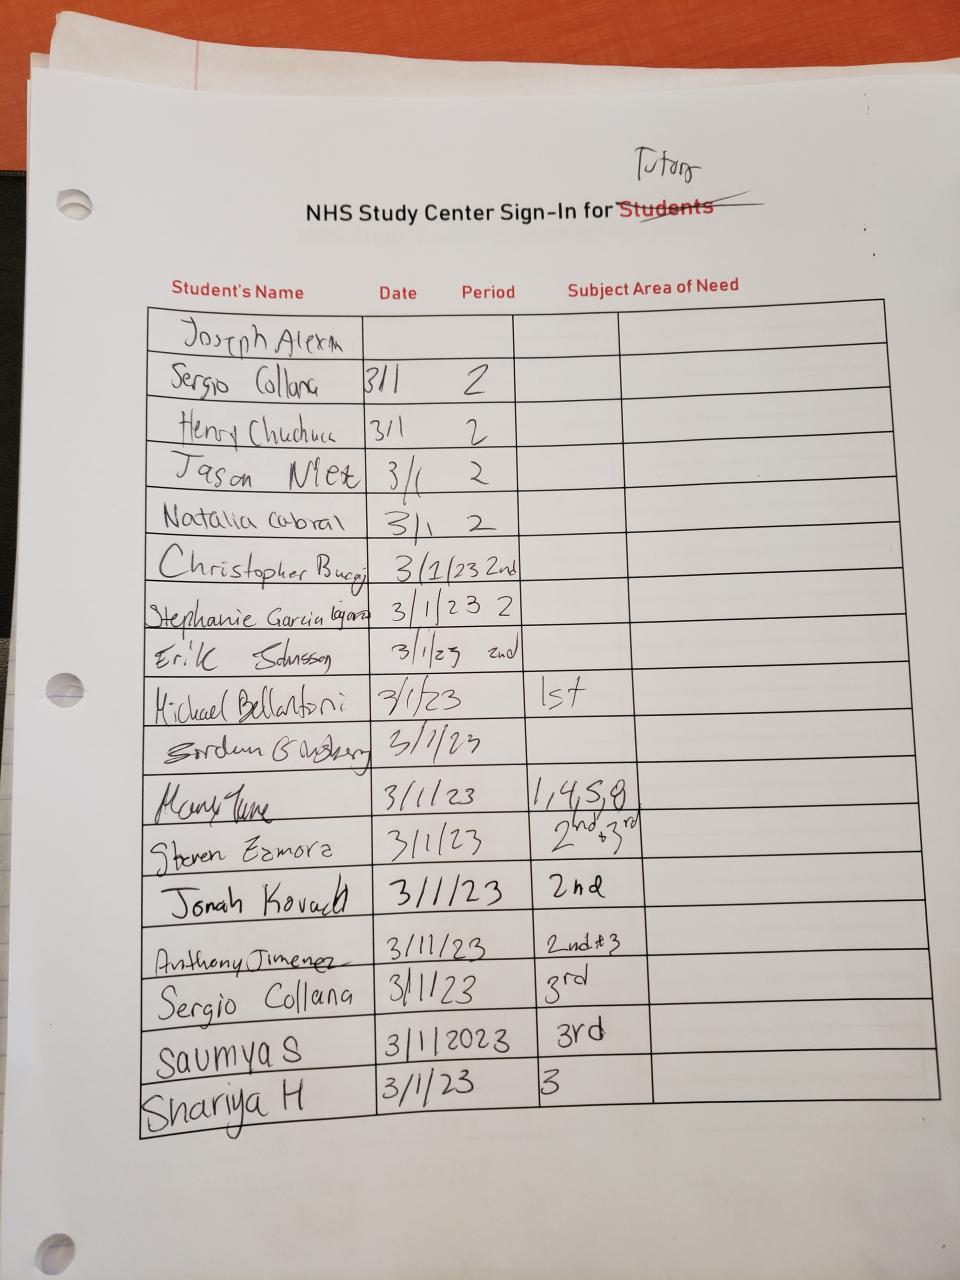 Tutors
NHS Study Center Sign-In for Students
Student's Name Date Period Subject Area of Need
Joseph
Sergio Collana 3/1 2
Henry Chuchuca 3/1 2
Jason 3/1 2
Natalia Cabral 3/1 2
Christopher 3/1/23 2nd
Stephanie Garcia 3/1/23 2
Erik 3/1/23 2nd
Michael Bellantoni 3/1/23 1st
3/1/23
3/1/23 1,4,5,8
Steven Zamora 3/1/23 2nd + 3rd
Jonah 3/1/23 2nd
Anthony Jimenez 3/1/23 2nd + 3
Sergio Collana 3/1/23 3rd
Saumya S 3/1/2023 3rd
Shariya H 3/1/23 3